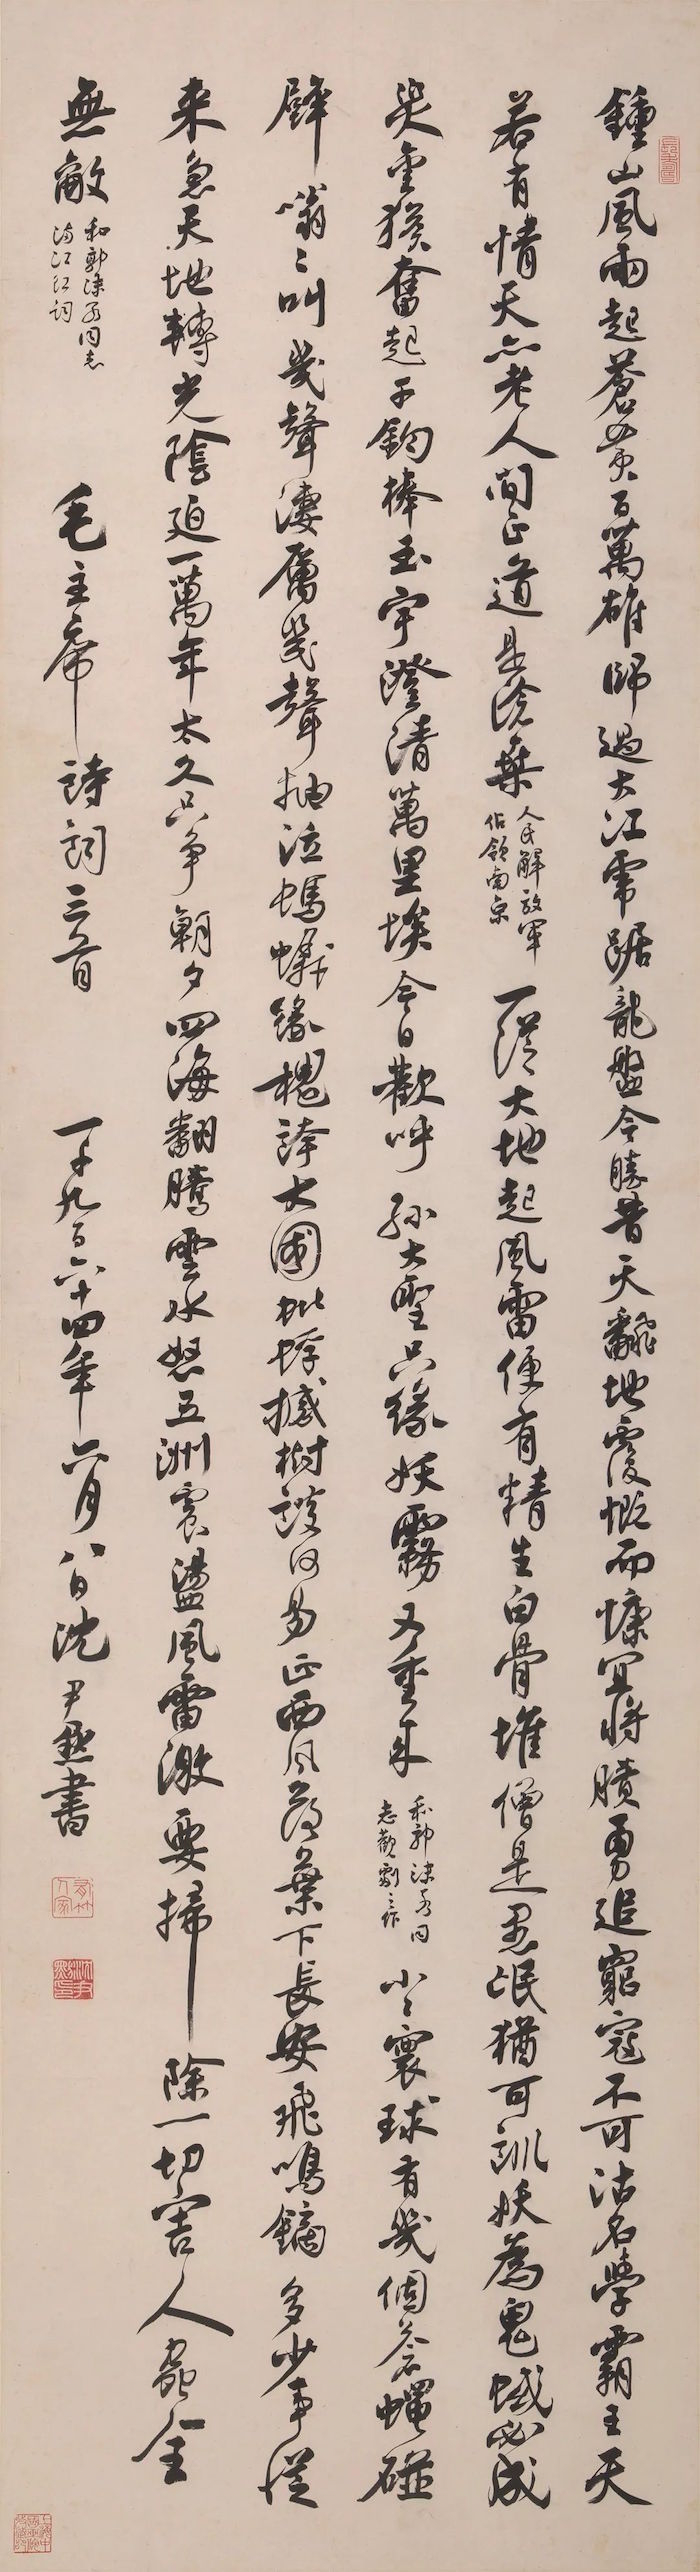 鍾山風雨起蒼黃百萬雄師過大江虎踞龍盤今勝昔天翻地覆慨而慷宜將賸勇追窮寇不可沽名學霸王天
若有情天亦老人間正道是滄桑
人民解放軍
佔領南京
一從大地起風雷便有精生白骨堆僧是愚氓猶可訓妖為鬼蜮必成
災金猴奮起千鈞棒玉宇澄清萬里埃今日歡呼孫大聖只緣妖霧又重來
和郭沫若同
志觀劇之作
小小寰球有幾個蒼蠅碰
壁嗡嗡叫幾聲淒厲幾聲抽泣螞蟻緣槐誇大國蚍蜉撼樹談何易正西風落葉下長安飛鳴鏑多少事從
来急天地轉光陰迫一萬年太久只争朝夕四海翻騰雲水怒五洲震盪風雷激要掃除一切害人蟲全
無敵
和郭沫若同志
滿江紅詞
毛主席詩詞三首
一千九百六十四年六月八日沈尹默書
沈尹默印